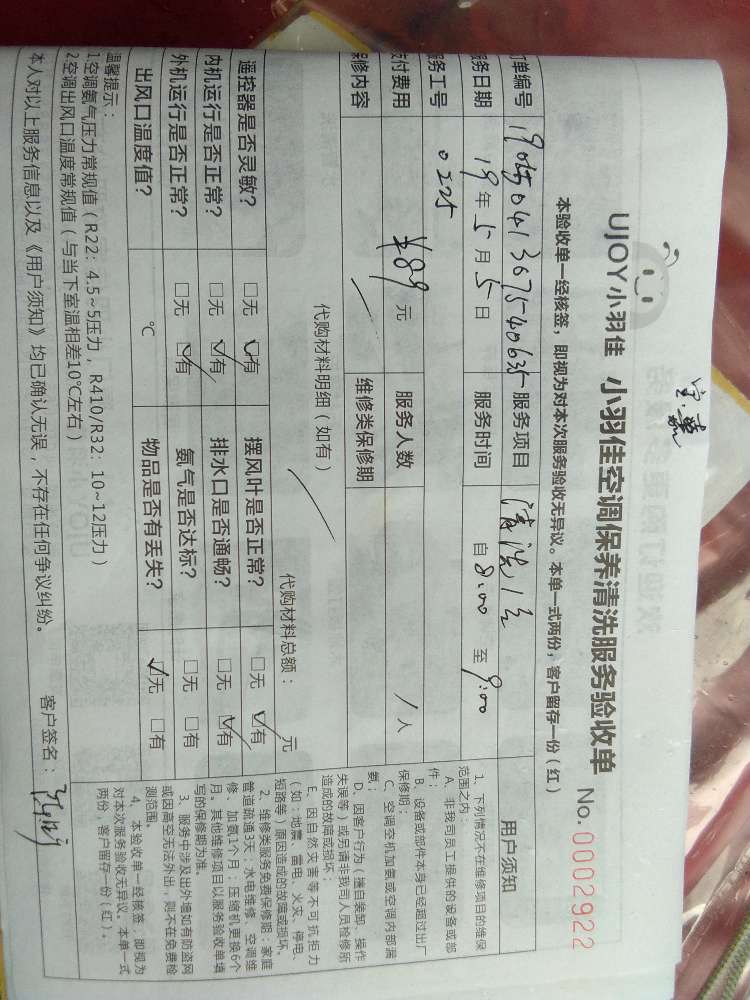 UJOY小羽佳 小羽佳空调保养清洗服务验收单 No.0002922
本验收单一经核签，即视为对本次服务验收无异议。本单一式两份，客户留存一份（红）
订单编号 服务项目 清洗1台
服务日期 19年5月5日 服务时间 自8:00至9:00
服务工号 0225
支付费用 ¥89元 服务人数 1人
保修内容 维修类保修期
代购材料明细（如有） 代购材料总额： 元
遥控器是否灵敏？ □无 ☑有 摆风叶是否正常？ □无 ☑有
内机运行是否正常？ □无 ☑有 排水口是否通畅？ □无 ☑有
外机运行是否正常？ □无 ☑有 氨气是否达标？ □无 □有
出风口温度值？ ℃ 物品是否有丢失？ ☑无 □有
温馨提示：
1.空调氨气压力常规值（R22：4.5~5压力，R410/R32：10~12压力）
2.空调出风口温度常规值（与当下室温相差10℃左右）
本人对以上服务信息以及《用户须知》均已确认无误，不存在任何争议纠纷。 客户签名：
用户须知
1、下列情况不在维修项目的维保
范围之内：
A、非我司员工提供的设备或部
件；
B、设备或部件本身已经超过出厂
保修期；
C、空调空机加氨或空调内部漏
氨；
D、因客户行为（擅自装卸、操作
失误等）或另请非我司人员检修所
造成的故障或损坏；
E、因自然灾害等不可抗拒力
（如：地震、雷电、火灾、停电、
短路等）原因造成的故障或损坏。
2、维修类服务免费保修期：家庭
管道疏通3天；水电维修、空调维
修、加氨1个月；压缩机更换6个
月。其他维修项目以服务验收单填
写的保修期为准。
3、服务中涉及出外墙如有防盗网
或因高空无法外出，则不在免费检
测范围。
4、本验收单一经核签，即视为
对本次服务验收无异议。本单一式
两份，客户留存一份（红）。